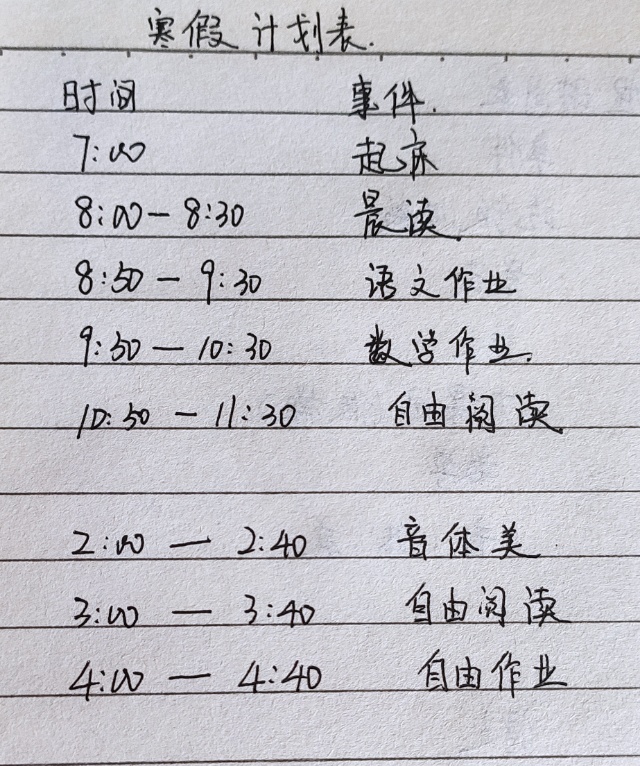 寒假计划表.
时间 事件.
7:00 起床
8:00-8:30 晨读.
8:50-9:30 语文作业
9:50-10:30 数学作业.
10:50-11:30 自由阅读.
2:00-2:40 音体美.
3:00-3:40 自由阅读
4:00-4:40 自由作业